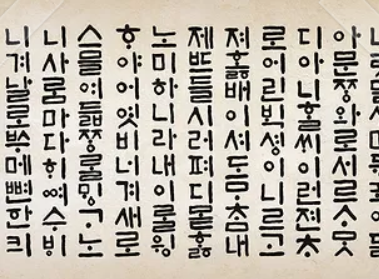 아문ᄍᆞᆼ와로서르ᄉᆞᄆᆞᆺ
디아니ᄒᆞᆯᄊᆡ이런젼ᄎᆞ
로어린ᄇᆡᆨ셔ᇰ이니르고
져호ᇙ배이셔도ᄆᆞᄎᆞᆷ내
제ᄠᅳ들시러펴디몯ᄒᆞᇙ
노미하니라내이ᄅᆞᆯ윙
ᄒᆞ야어엿비너겨새로
스믈여듧ᄍᆞᆼᄅᆞᆯᄆᆡᇰᄀᆞ노
니사ᄅᆞᆷ마다ᄒᆡᅇᅧ수ᄫᅵ
니겨날로ᄡᅮ메뼌한킈